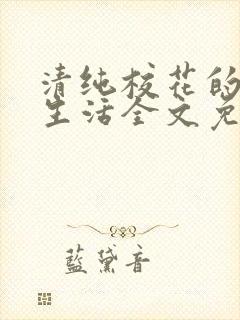 清纯校花的
生活全文免
藍黛音